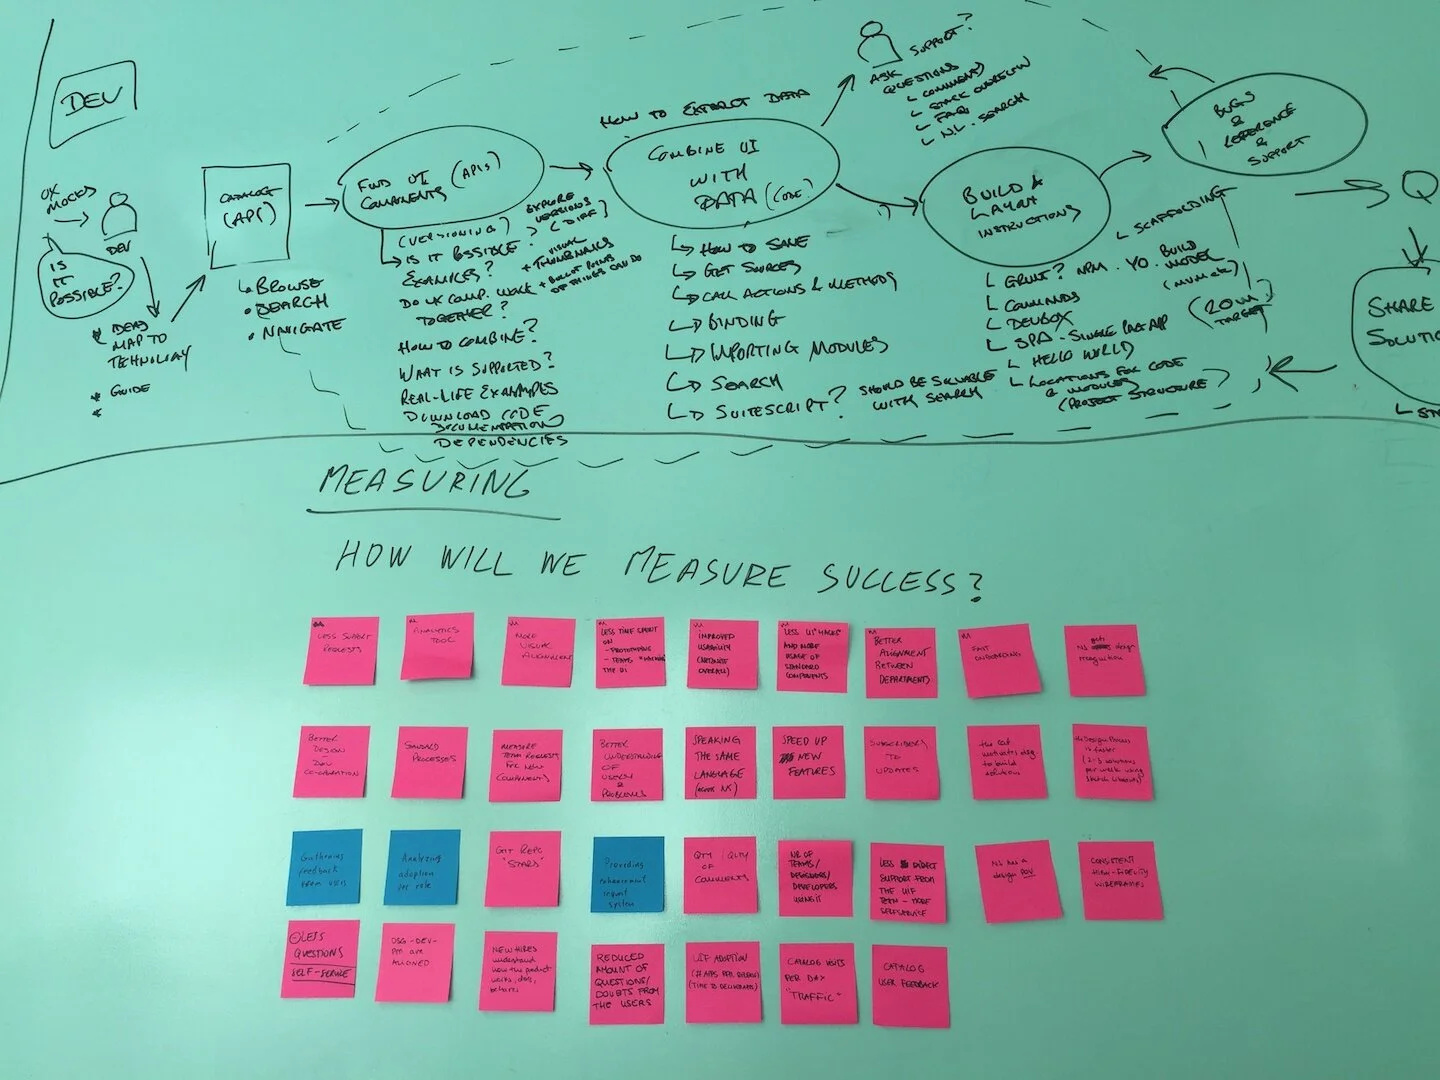 DEV
UX
MOCKS
DEV
IS
IT
POSSIBLE?
IDEAS
MAP TO
TECHNOLOGY
GUIDE
CATALOG
(API)
BROWSE
SEARCH
NAVIGATE
FIND UI (APIS)
COMPONENTS
(VERSIONING)
EXPLORE
VERSIONS
(DIFF)
IS IT POSSIBLE?
EXAMPLES?
+ VISUAL
THUMBNAILS
+ BULLET POINTS
OF THINGS CAN DO
DO UX COMP. WORK
TOGETHER?
HOW TO COMBINE?
WHAT IS SUPPORTED?
REAL-LIFE EXAMPLES
DOWNLOAD CODE
DOCUMENTATION
DEPENDENCIES
HOW TO EXTRACT DATA
COMBINE UI
WITH
DATA (CODE?
HOW TO SAVE
GET SOURCES
CALL ACTIONS & METHODS
BINDING
IMPORTING MODULES
SEARCH
SUITESCRIPT?
SHOULD BE SOLVABLE
WITH SEARCH
SUPPORT?
ASK
QUESTIONS
COMMENTS
STACK OVERFLOW
FAQ
N.L. SEARCH
BUILD &
LAYOUT
INSTRUCTIONS
SCAFFOLDING
GRUNT? NPM. YO. BUILD
MODEL
COMMANDS
DEVBOX
SPA - SINGLE PAGE APP
HELLO WORLD
LOCATIONS FOR CODE
& MODULES
(PROJECT STRUCTURE?
(20M
TARGET)
BUGS
&
REFERENCE
&
SUPPORT
Q
SHARE
SOLUTION
MEASURING
HOW WILL WE MEASURE SUCCESS?
LESS SUPPORT
REQUESTS
ANALYTICS
TOOL
MORE
VISUAL
ALIGNMENT
LESS TIME SPENT
ON
- PROTOTYPING
- TEAMS "HACKING"
THE UI
IMPROVED
USABILITY
(NETSUITE
OVERALL)
LESS UI "HACKS"
AND MORE
USAGE OF
STANDARD
COMPONENTS
BETTER
ALIGNMENT
BETWEEN
DEPARTMENTS
FAST
ONBOARDING
NS gets design
recognition
BETTER
DESIGN
- DEV
CO-OPERATION
STANDARD
PROCESSES
MEASURE
TEAM REQUESTS
FOR NEW
COMPONENTS
BETTER
UNDERSTANDING
OF
USERS &
PROBLEMS
SPEAKING
THE SAME
LANGUAGE
SPEED UP
NEW
FEATURES
SUBSCRIBERS
TO
UPDATES
the cat
motivates
to build
solutions
Design Process
is faster
(2-3 solutions
per week using
sketch
Gathering
feedback
from users
Analyzing
adoption
per role
GIT REPO
"STARS"
Providing
enhancement
request
system
QTY / QLTY
OF
COMMENTS
NR OF
TEAMS/
DESIGNERS/
DEVELOPERS
USING IT
LESS DIRECT
SUPPORT FROM
THE UIF
TEAM - MORE
SELFSERVICE
NS has a
design POV
CONSISTENT
HIGH-FIDELITY
WIREFRAMES
LESS
QUESTIONS
SELF-SERVICE
DSG-DEV-
PM are
ALIGNED
NEW HIRES
understand
how the product
works, does,
behaves
REDUCED
AMOUNT OF
QUESTIONS/
DOUBTS FROM
THE USERS
UIF ADOPTION
(# APPS PER RELEASE)
(TIME TO DELIVERABLE)
CATALOG VISITS
PER DAY
"TRAFFIC"
CATALOG
USER FEEDBACK